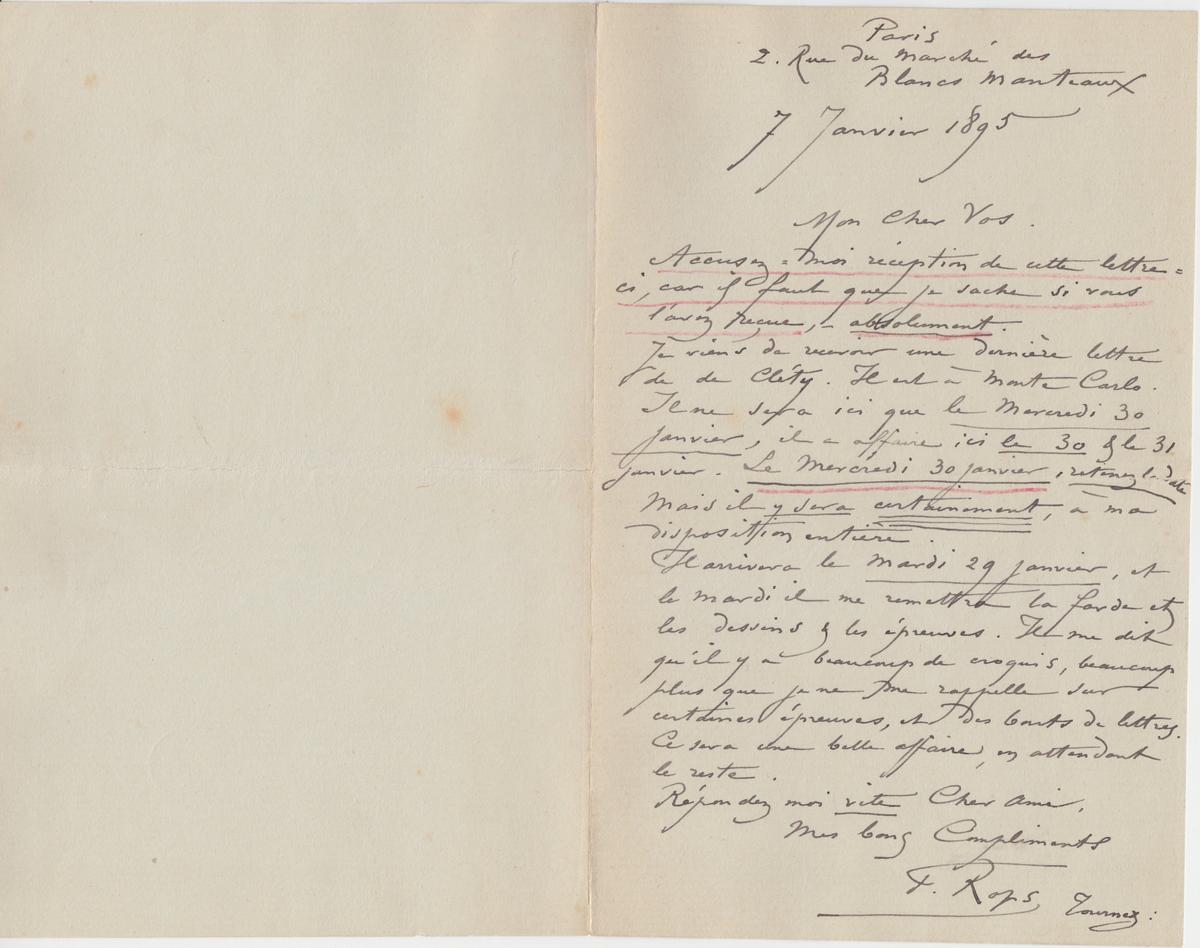 Paris
2. Rue du Marché des
Blancs Manteaux
7 Janvier 1895
Mon Cher Vos.
Accusez=moi réception de cette lettre=
ci, car il faut que je sache si vous
l'avez reçue, – absolument.
Je viens de recevoir une dernière lettre
de de Cléty. Il est à Monte Carlo.
Il ne sera ici que le Mercredi 30
janvier, il a affaire ici le 30 & le 31
janvier. Le Mercredi 30 janvier, retenez la date
Mais il y sera certainement, à ma
disposition entière.
Il arrivera le Mardi 29 janvier, et
le mardi il me remettra la farde et
les dessins & les épreuves. Il me dit
qu'il y a beaucoup de croquis, beaucoup
plus que je ne me rappelle sur
certaines épreuves, et des bouts de lettres.
Ce sera une belle affaire, en attendant
le reste.
Répondez moi vite Cher Ami,
Mes bons Compliments
F. Rops
Tournez: